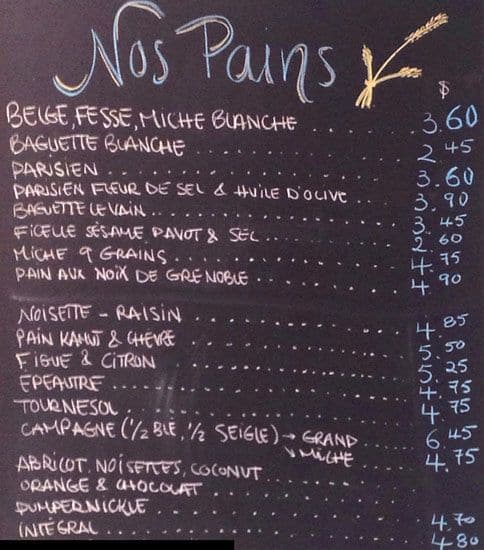 Nos Pains
$
BELGE, FESSE, MICHE BLANCHE .... 3.60
BAGUETTE BLANCHE .... 2.45
PARISIEN .... 3.60
PARISIEN FLEUR DE SEL & HUILE D'OLIVE .... 3.90
BAGUETTE LEVAIN .... 3.45
FICELLE SÉSAME PAVOT & SEL .... 2.60
MICHE 9 GRAINS .... 4.75
PAIN AUX NOIX DE GRENOBLE .... 4.90
NOISETTE - RAISIN .... 4.85
PAIN KAMUT & CHÈVRE .... 5.50
FIGUE & CITRON .... 5.25
EPEAUTRE .... 4.75
TOURNESOL .... 4.75
CAMPAGNE (1/2 BLE, 1/2 SEIGLE) → GRAND .... 6.45
↘ MICHE .... 4.75
ABRICOT, NOISETTES, COCONUT ....
ORANGE & CHOCOLAT ....
PUMPERNICKLE .... 4.70
INTÉGRAL .... 4.80